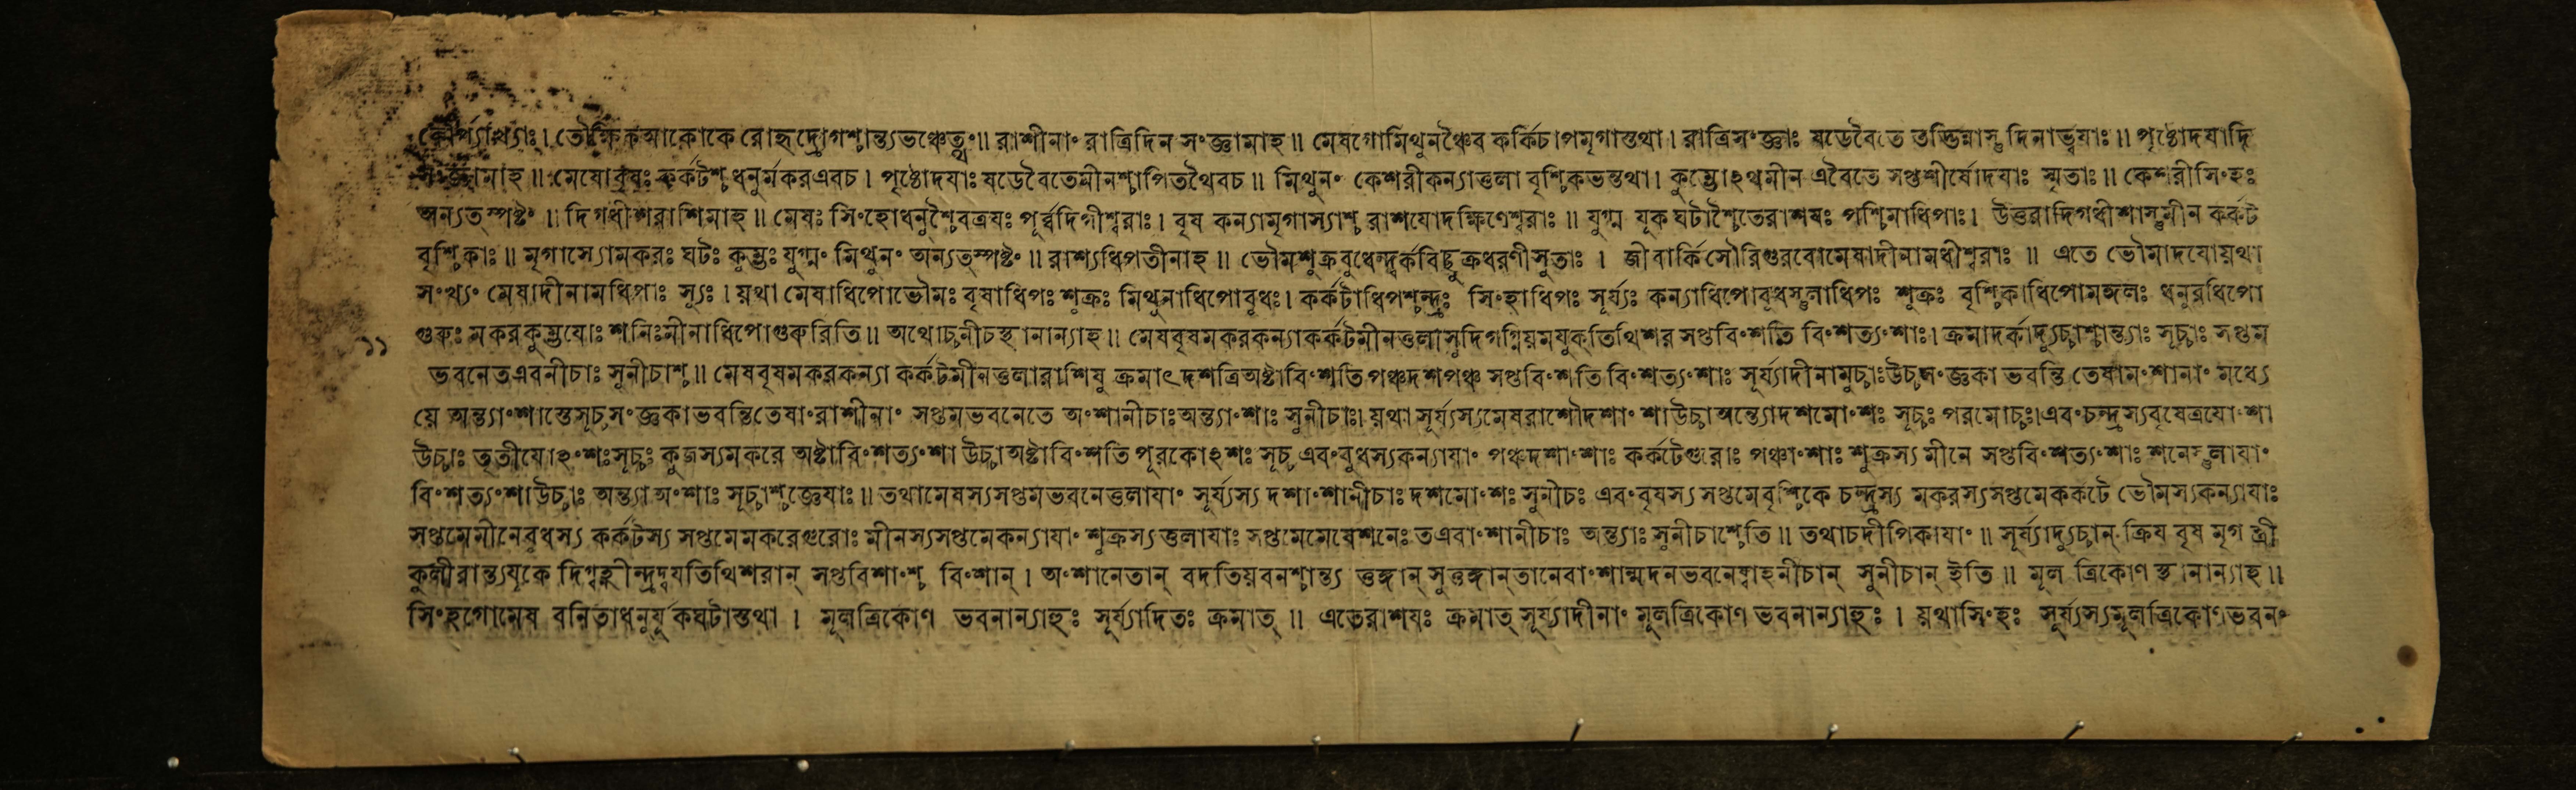 কৌর্প্যাখ্যাঃ। তৌক্ষিকআকোকেরোহৃদ্রোগশ্চান্ত্যভঞ্চেত্থং॥ রাশীনাং রাত্রিদিন সংজ্ঞামাহ॥ মেষগোমিথুনঞ্চৈব কর্কিচাপমৃগাস্তথা। রাত্রিসংজ্ঞাঃ ষডেবৈতে তদ্ভিন্নাস্তু দিনাহ্বযাঃ॥ পৃষ্ঠোদযাদি
সংজ্ঞামাহ॥ মেষোবৃষঃ কর্কটশ্চ ধনুর্মকরএবচ। পৃষ্ঠোদযাঃ ষডেবৈতেমীনশ্চাপিতথৈবচ॥ মিথুনং কেশরীকন্যাত্তলা বৃশ্চিকভন্তথা। কুম্ভোঽথমীন এবৈতে সপ্তশীর্ষোদযাঃ স্মৃতাঃ॥ কেশরীসিংহঃ
অন্যত্স্পষ্টং॥ দিগধীশরাশিমাহ॥ মেষঃ সিংহোধনুশ্চৈবত্রযঃ পূর্ব্বদিগীশ্বরাঃ। বৃষ কন্যামৃগাস্যাশ্চ রাশযোদক্ষিণেশ্বরাঃ॥ যুগ্ম যূক ঘটাশ্চৈতেরাশযঃ পশ্চিমাধিপাঃ। উত্তরাদিগধীশাস্তুমীন কর্কট
বৃশ্চিকাঃ॥ মৃগাস্যোমকরঃ ঘটঃ কুম্ভঃ যুগ্মং মিথুনং অন্যত্স্পষ্টং॥ রাশ্যধিপতীনাহ॥ ভৌমশুক্রবুধেন্দ্বর্কবিচ্ছুক্রধরণীসুতাঃ। জীবার্কিসৌরিগুরবোমেষাদীনামধীশ্বরাঃ॥ এতে ভৌমাদযোয়থা
সংখ্যং মেষাদীনামধিপাঃ স্যুঃ। য়থা মেষাধিপোভৌমঃ বৃষাধিপঃ শুক্রঃ মিথুনাধিপোবুধঃ। কর্কটাধিপশ্চন্দ্রঃ সিংহাধিপঃ সূর্য্যঃ কন্যাধিপোবুধস্তুলাধিপঃ শুক্রঃ বৃশ্চিকাধিপোমঙ্গলঃ ধনুরধিপো
১১ গুরুঃ মকরকুম্ভযোঃ শনিঃমীনাধিপোগুরুরিতি॥ অথোচ্চনীচস্থানান্যাহ॥ মেষবৃষমকরকন্যাকর্কটমীনত্তলাসুদিগগ্নিয়মযুক্‌তিথিশর সপ্তবিংশতি বিংশত্যংশাঃ। ক্রমাদর্কাদ্যুচ্চাশ্চান্ত্যাঃ সূচ্চাঃ সপ্তম
ভবনেতএবনীচাঃ সুনীচাশ্চ॥ মেষবৃষমকরকন্যা কর্কটমীনত্তলারাশিষু ক্রমাৎদশত্রিঅষ্টাবিংশতি পঞ্চদশপঞ্চ সপ্তবিংশতি বিংশত্যংশাঃ সূর্য্যাদীনামুচ্চাঃউচ্চসংজ্ঞকা ভবন্তি তেষামংশানাং মধ্যে
য়ে অন্ত্যাংশাস্তেসূচ্চসংজ্ঞকাভবন্তিতেষাংরাশীনাং সপ্তমভবনেতে অংশানীচাঃঅন্ত্যাংশাঃ সুনীচাঃ। য়থা সূর্য্যস্যমেষরাশৌদশাংশাউচ্চাঅন্ত্যোদশমোংশঃ সূচ্চঃ পরমোচ্চঃ।এবংচন্দ্রস্যবৃষেত্রযোংশা
উচ্চাঃ তৃতীযোঽংশঃসূচ্চঃ কুজস্যমকরে অষ্টাবিংশত্যংশা উচ্চাঅষ্টাবিংশতি পূরকোঽশঃ সূচ্চ এবংবুধস্যকন্যাযাং পঞ্চদশাংশাঃ কর্কটেগুরোঃ পঞ্চাংশাঃ শুক্রস্য মীনে সপ্তবিংশত্যংশাঃ শনেস্তুলাযাং
বিংশত্যংশাউচ্চাঃ অন্ত্যাঅংশাঃ সূচ্চাশ্চজ্ঞেযাঃ॥ তথামেষস্যসপ্তমভবনেত্তলাযাং সূর্য্যস্য দশাংশানীচাঃ দশমোংশঃ সুনীচঃ এবংবৃষস্য সপ্তমেবৃশ্চিকে চন্দ্রস্য মকরস্যসপ্তমেকর্কটে ভৌমস্যকন্যাযাঃ
সপ্তমেমীনেবুধস্য কর্কটস্য সপ্তমেমকরেগুরোঃ মীনস্যসপ্তমেকন্যাযাং শুক্রস্য ত্তলাযাঃ সপ্তমেমেষেশনেঃ তএবাংশানীচাঃ অন্ত্যাঃ সুনীচাশ্চেতি॥ তথাচদীপিকাযাং॥ সূর্য্যাদ্যুচ্চান্ ক্রিয বৃষ মৃগ স্ত্রী
কুলীরান্ত্যযূকে দিগ্বহ্নীন্দ্রদ্বযতিথিশরান্ সপ্তবিশাংশ্চ বিংশান্। অংশানেতান্ বদতিয়বনশ্চান্ত্য ত্তঙ্গান্ সুত্তঙ্গান্‌তানেবাংশান্মদনভবনেষ্বাহনীচান্ সুনীচান্ ইতি॥ মূল ত্রিকোণ স্থানান্যাহ॥
সিংহগোমেষ বনিতাধনুর্যূকঘটাস্তথা। মূলত্রিকোণ ভবনান্যাহুঃ সূর্য্যাদিতঃ ক্রমাত্॥ এতেরাশযঃ ক্রমাত্ সূর্য্যাদীনাং মূলত্রিকোণ ভবনান্যাহুঃ। য়থাসিংহঃ সূর্য্যস্যমূলত্রিকোণভবনং